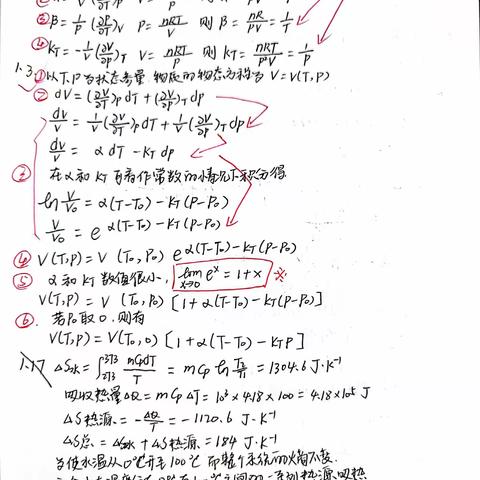 ③ β = 1/P (∂P/∂T)V P = nRT/V 则 β = nR/PV = 1/T
④ KT = -1/V (∂V/∂P)T V = nRT/P 则 KT = nRT/P²V = 1/P
1.3. ①以T,P为状态参量 物质的物态方程为 V = V(T,P)
② dV = (∂V/∂T)P dT + (∂V/∂P)T dp
dV/V = 1/V (∂V/∂T)P dT + 1/V (∂V/∂P)T dp
dV/V = α dT - KT dp
③ 在α和KT可看作常数的情况下积分得
ln V/V₀ = α(T-T₀) - KT(P-P₀)
V/V₀ = e^α(T-T₀)-KT(P-P₀)
④ V(T,P) = V(T₀,P₀) e^α(T-T₀)-KT(P-P₀)
⑤ α和KT数值很小, lim x→0 e^x = 1+x ※
V(T,P) = V(T₀,P₀) [1+α(T-T₀)-KT(P-P₀)]
⑥. 若P₀取0,则有
V(T,P) = V(T₀,0) [1+α(T-T₀)-KTP]
1.17 ΔS水 = ∫273^373 mCpdT/T = mCp ln T₂/T₁ = 1304.6 J·K⁻¹
吸收热量ΔQ = mCpΔT = 10³×4.18×100 = 4.18×10⁵ J
ΔS热源 = -ΔQ/T = -1120.6 J·K⁻¹
ΔS总 = ΔS水 + ΔS热源 = 184 J·K⁻¹
为使水温从0℃升至100℃而整个系统的火商不变.
热源吸热